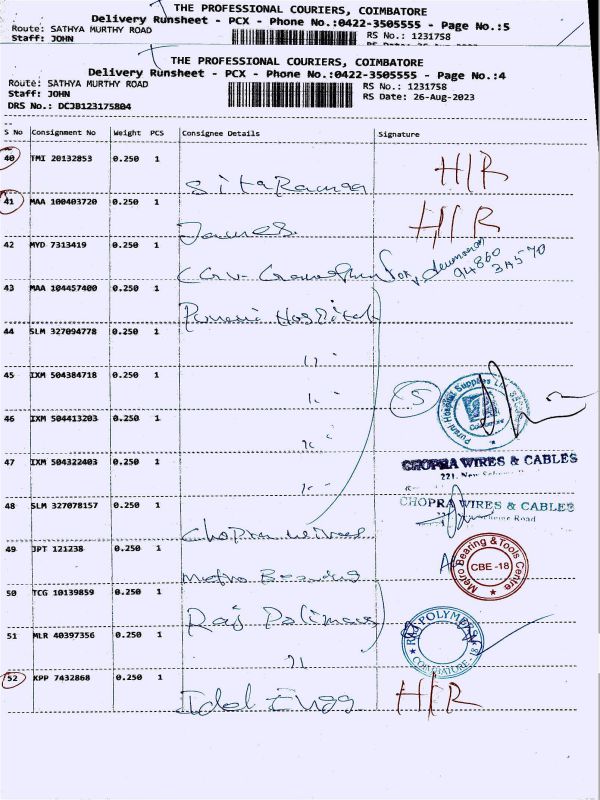 THE PROFESSIONAL COURIERS, COIMBATORE
Delivery Runsheet - PCX - Phone No.:0422-3505555 - Page No.:5
Route: SATHYA MURTHY ROAD
RS No.: 1231758
Staff: JOHN
THE PROFESSIONAL COURIERS, COIMBATORE
Delivery Runsheet - PCX - Phone No.:0422-3505555 - Page No.:4
Route: SATHYA MURTHY ROAD
RS No.: 1231758
Staff: JOHN
RS Date: 26-Aug-2023
DRS No.: DCJB123175804
S No Consignment No Weight PCS Consignee Details Signature
40 TMI 20132853 0.250 1 H/R
SitaRaman
41 MAA 100403720 0.250 1 H/R
James
42 MYD 7313419 0.250 1
94860
43 MAA 104457400 0.250 1
Purani Hospital
44 SLM 327094778 0.250 1
11
45 IXM 504384718 0.250 1
5
Purani Hospital Supplies
46 IXM 504413203 0.250 1
47 IXM 504322403 0.250 1
CHOPRA WIRES & CABLES
48 SLM 327078157 0.250 1
CHOPRA WIRES & CABLES
Chopra wires
49 JPT 121238 0.250 1
Metro Bearing & Tools Centre
CBE -18
Metro Bearing
50 TCG 10139859 0.250 1
Raj Polimers
51 MLR 40397356 0.250 1
RAJ POLYMERS
COIMBATORE - 18
11
52 KPP 7432868 0.250 1 H/R
Idol Engg